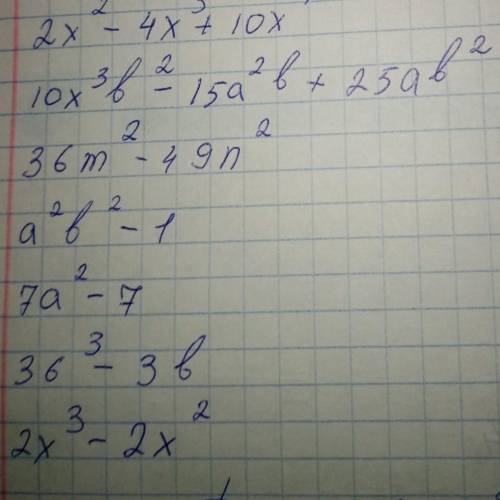 2x² - 4x³ + 10x
10x³b² - 15a²b + 25ab²
36m² - 49n²
a²b² - 1
7a² - 7
3b³ - 3b
2x³ - 2x²